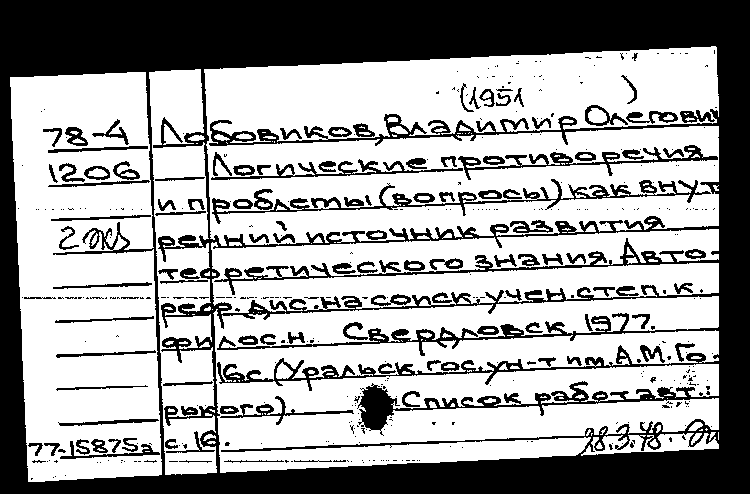 (1951 )
78-4 Лобовиков, Владимир Олегович
1206 Логические противоречия
и проблемы (вопросы) как внут
2 экз ренний источник развития
теоретического знания. Авто-
реф. дис. на соиск. учен. степ. к.
филос. н. Свердловск, 1977.
16 с. (Уральск. гос. ун-т им. А.М. Го-
рького). Список работ авт.:
77-15875а с. 16.